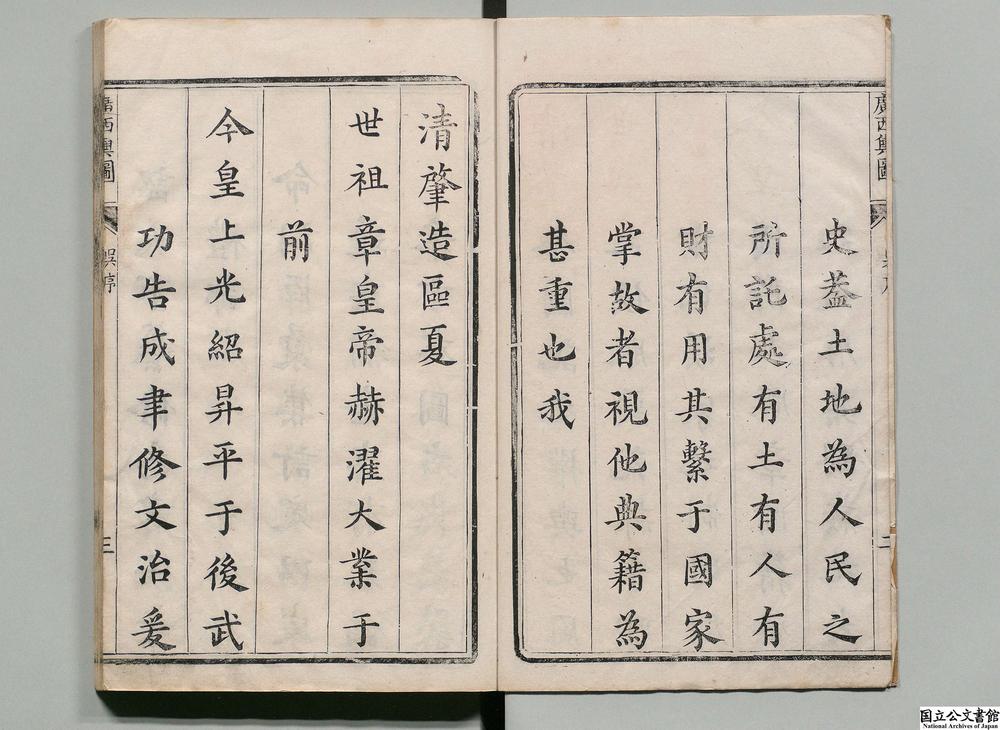 廣西輿圖
二
史葢土地為人民之
所託處有土有人有
財有用其繫于國家
掌故者視他典籍為
甚重也我
清肇造區夏
世祖章皇帝赫濯大業于
前
今皇上光紹昇平于後武
功告成聿修文治爰
廣西輿圖
吳序
三
国立公文書館
National Archives of Japan